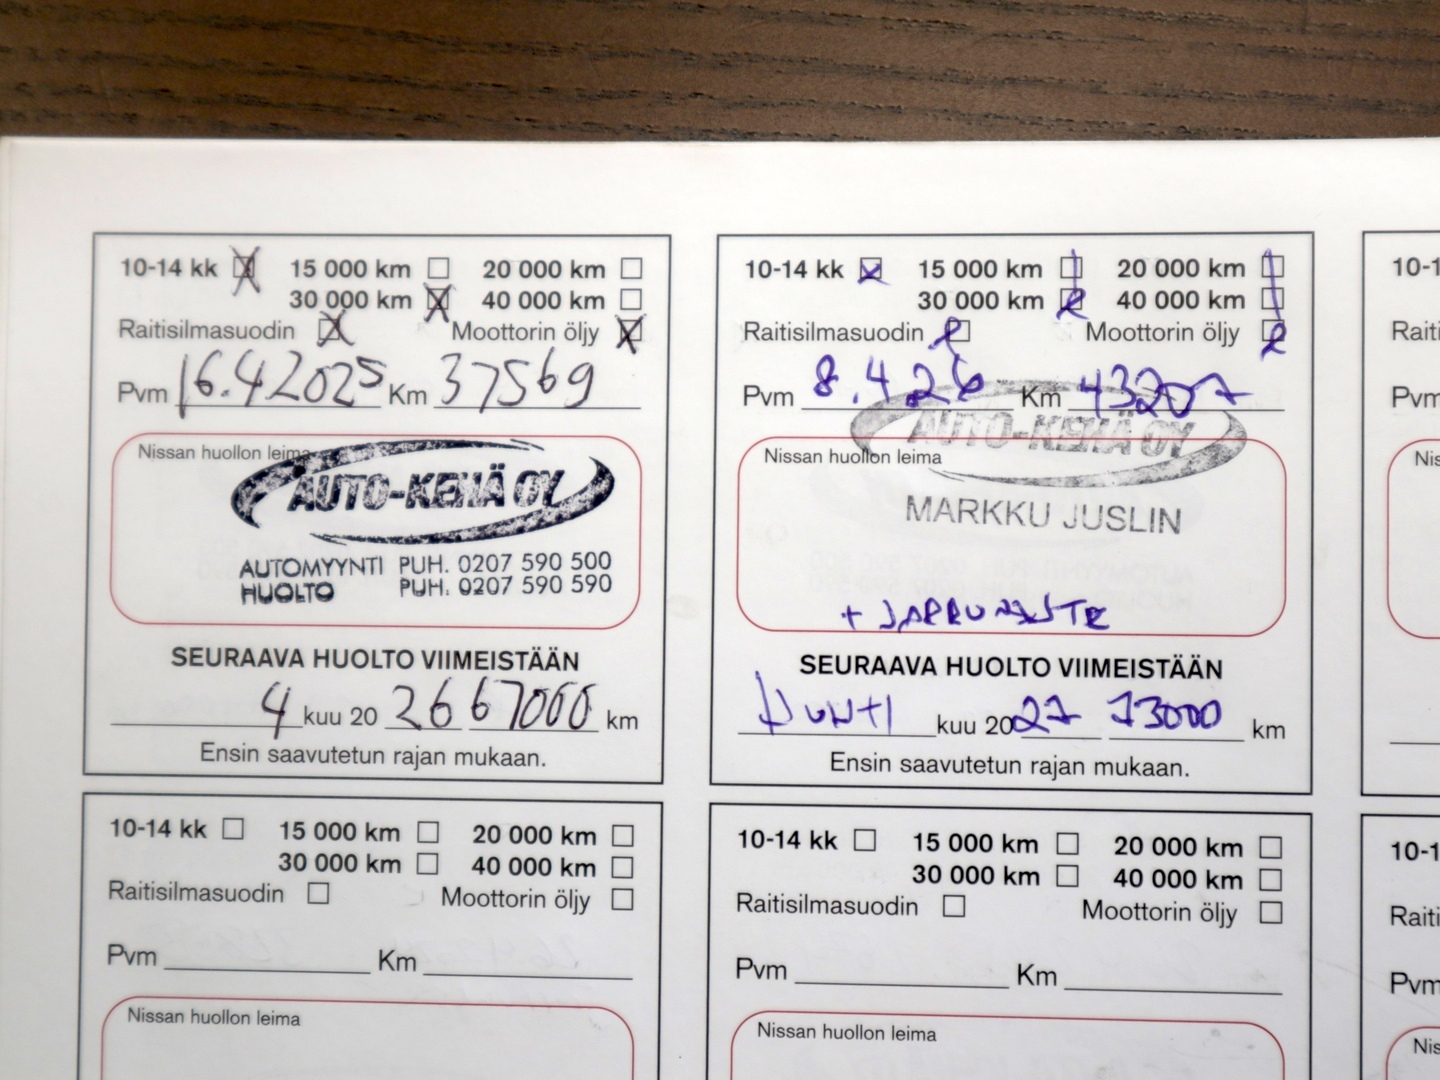 10-14 kk 15 000 km 20 000 km
30 000 km 40 000 km
Raitisilmasuodin Moottorin öljy
Pvm 16.4.2025 Km 37569
Nissan huollon leima
AUTO-KEHÄ OY
AUTOMYYNTI PUH. 0207 590 500
HUOLTO PUH. 0207 590 590
SEURAAVA HUOLTO VIIMEISTÄÄN
4 kuu 20 26 67000 km
Ensin saavutetun rajan mukaan.
10-14 kk 15 000 km 20 000 km
30 000 km 40 000 km
Raitisilmasuodin Moottorin öljy
Pvm 8.4.26 Km 43207
Nissan huollon leima
AUTO-KEHÄ OY
MARKKU JUSLIN
+ JARRUNESTE
SEURAAVA HUOLTO VIIMEISTÄÄN
HUHTI kuu 20 27 73000 km
Ensin saavutetun rajan mukaan.
10-1
Raiti
Pvm
Nis
10-14 kk 15 000 km 20 000 km
30 000 km 40 000 km
Raitisilmasuodin Moottorin öljy
Pvm Km
Nissan huollon leima
10-14 kk 15 000 km 20 000 km
30 000 km 40 000 km
Raitisilmasuodin Moottorin öljy
Pvm Km
Nissan huollon leima
10-1
Raiti
Pvm
Nis